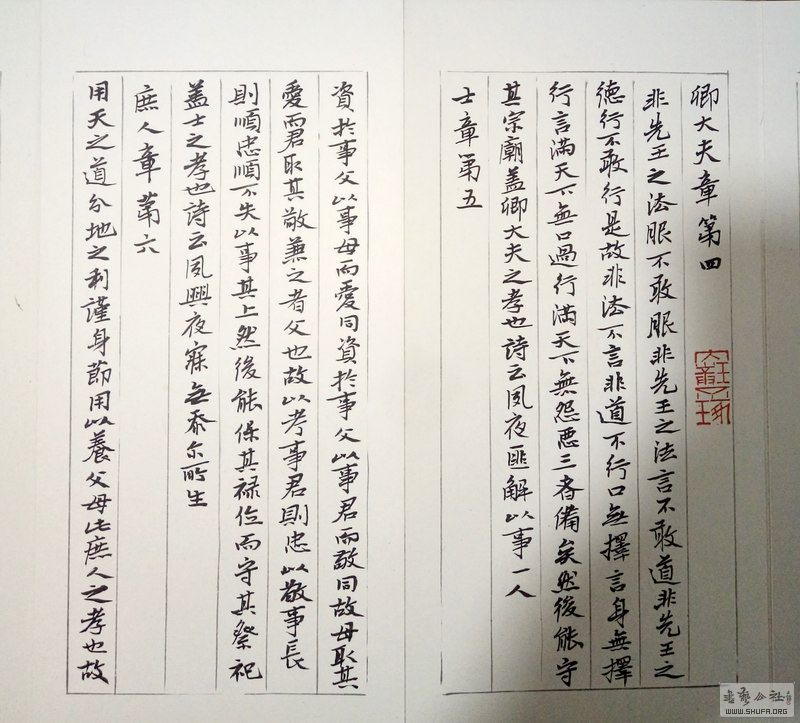 卿大夫章第四
非先王之法服不敢服非先王之法言不敢道非先王之
德行不敢行是故非法不言非道不行口無擇言身無擇
行言滿天下無口過行滿天下無怨惡三者備矣然後能守
其宗廟蓋卿大夫之孝也詩云夙夜匪解以事一人
士章第五
資於事父以事母而愛同資於事父以事君而敬同故母取其
愛而君取其敬兼之者父也故以孝事君則忠以敬事長
則順忠順不失以事其上然後能保其祿位而守其祭祀
蓋士之孝也詩云夙興夜寐無忝尔所生
庶人章第六
用天之道分地之利謹身節用以養父母此庶人之孝也故
書藝公社
WWW.SHUFA.ORG